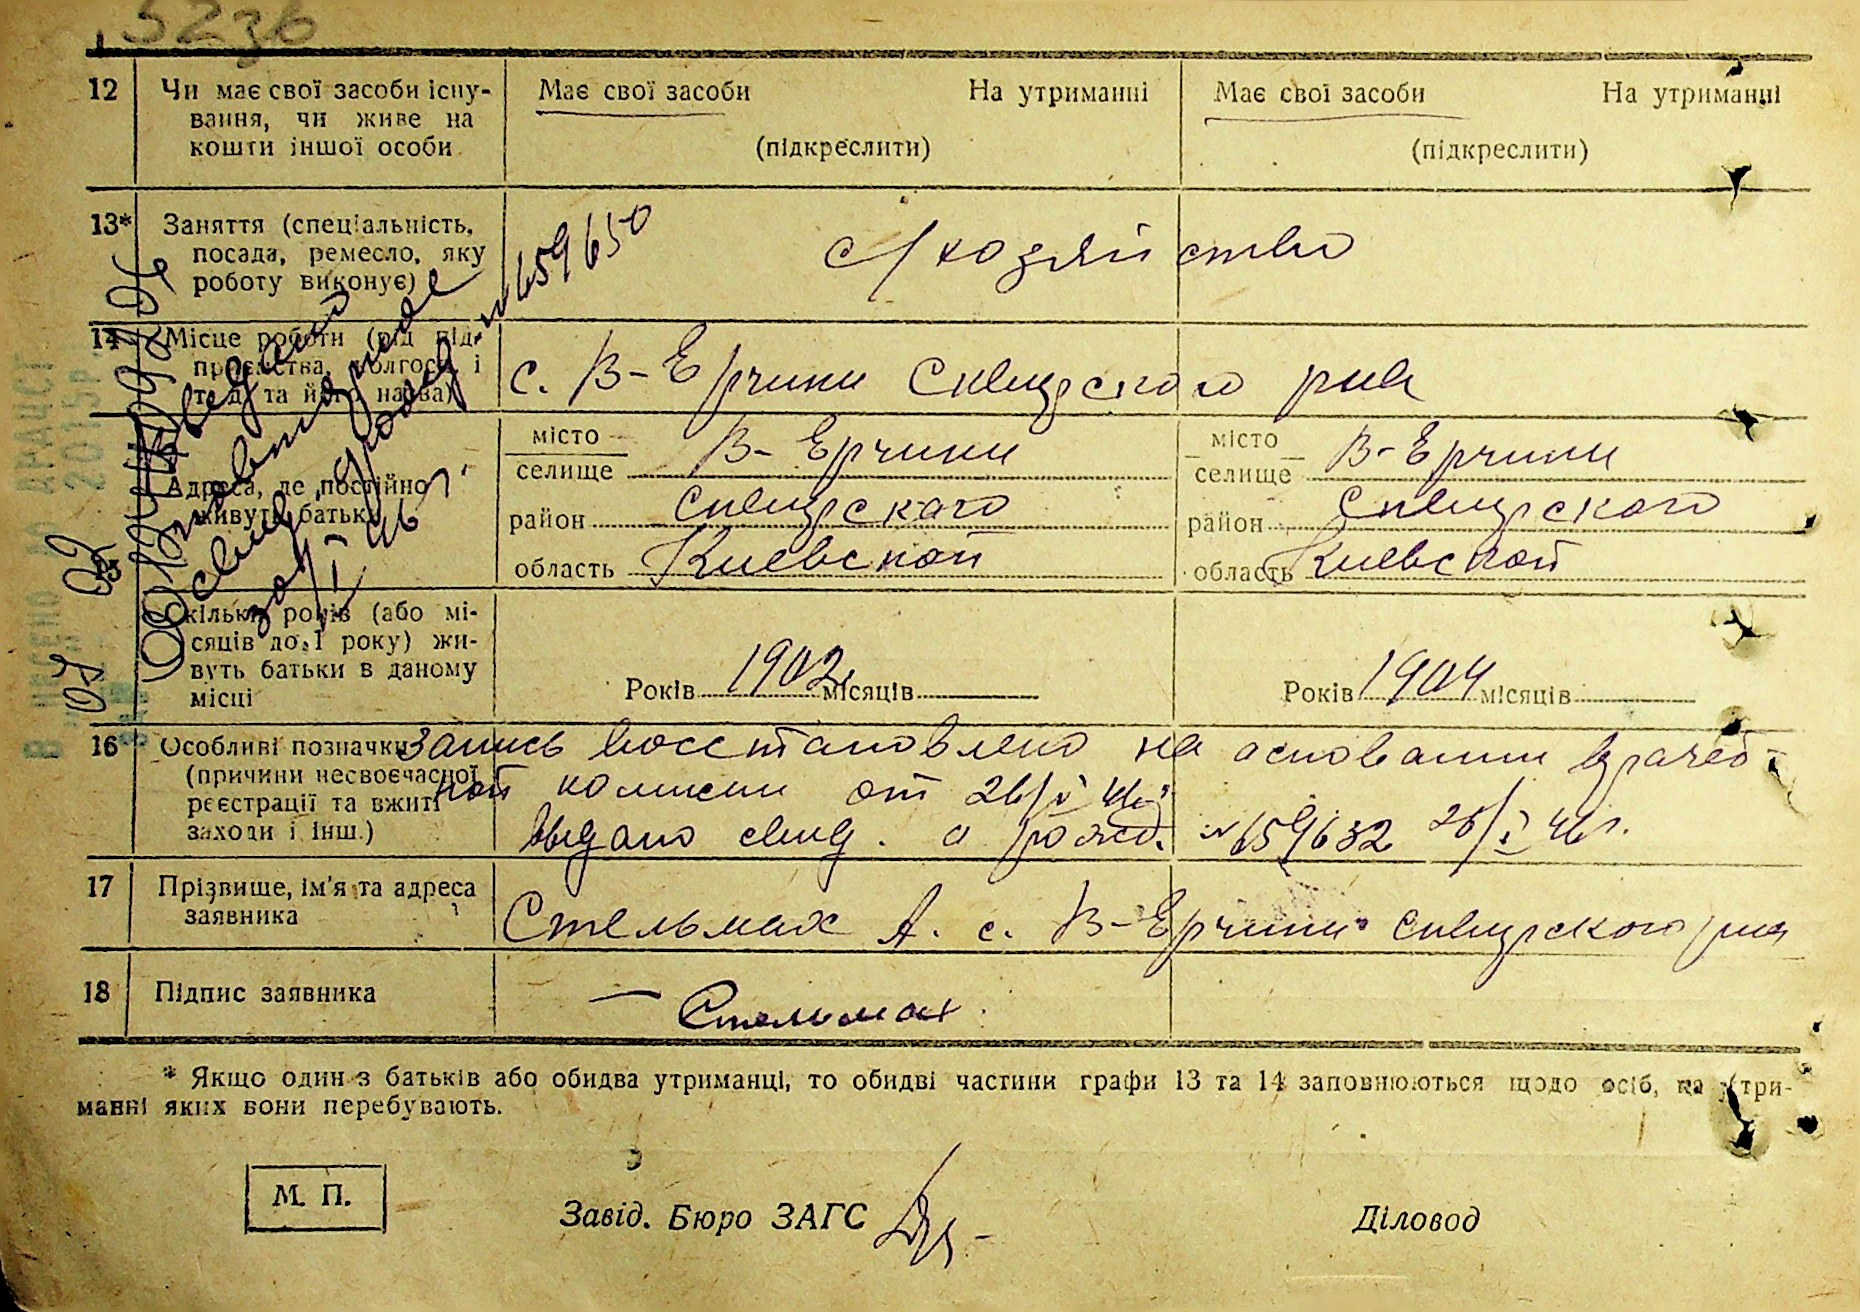 5236
12 Чи має свої засоби існу-
вання, чи живе на
кошти іншої особи
Має свої засоби На утриманні
(підкреслити)
Має свої засоби На утриманні
(підкреслити)
13* Заняття (спеціальність,
посада, ремесло, яку
роботу виконує)
с/хозяйство
№ 659650
14 Місце роботи (рід під-
приємства, колгосп і
т. д. та його назва)
с. В-Ерчики Сквирского р-на
15 Адреса, де постійно
живуть батьки
місто
селище В-Ерчики
район Сквирского
область Киевской
місто
селище В-Ерчики
район Сквирского
область Киевской
Скільки років (або мі-
сяців до 1 року) жи-
вуть батьки в даному
місці
Років 1902 місяців
Років 1904 місяців
16 Особливі позначки
(причини несвоєчасної
реєстрації та вжиті
заходи і інш.)
Запись восстановлено на основании врачеб-
ной комисии от 26/V 46г
Выдано свид. о рожд. № 659632 26/V 46г.
17 Прізвище, ім'я та адреса
заявника
Стельмах А. с. В-Ерчики Сквирского р-на
18 Підпис заявника
Стельмах
* Якщо один з батьків або обидва утриманці, то обидві частини графи 13 та 14 заповнюються щодо осіб, на утри-
манні яких вони перебувають.
М. П.
Завід. Бюро ЗАГС
Діловод